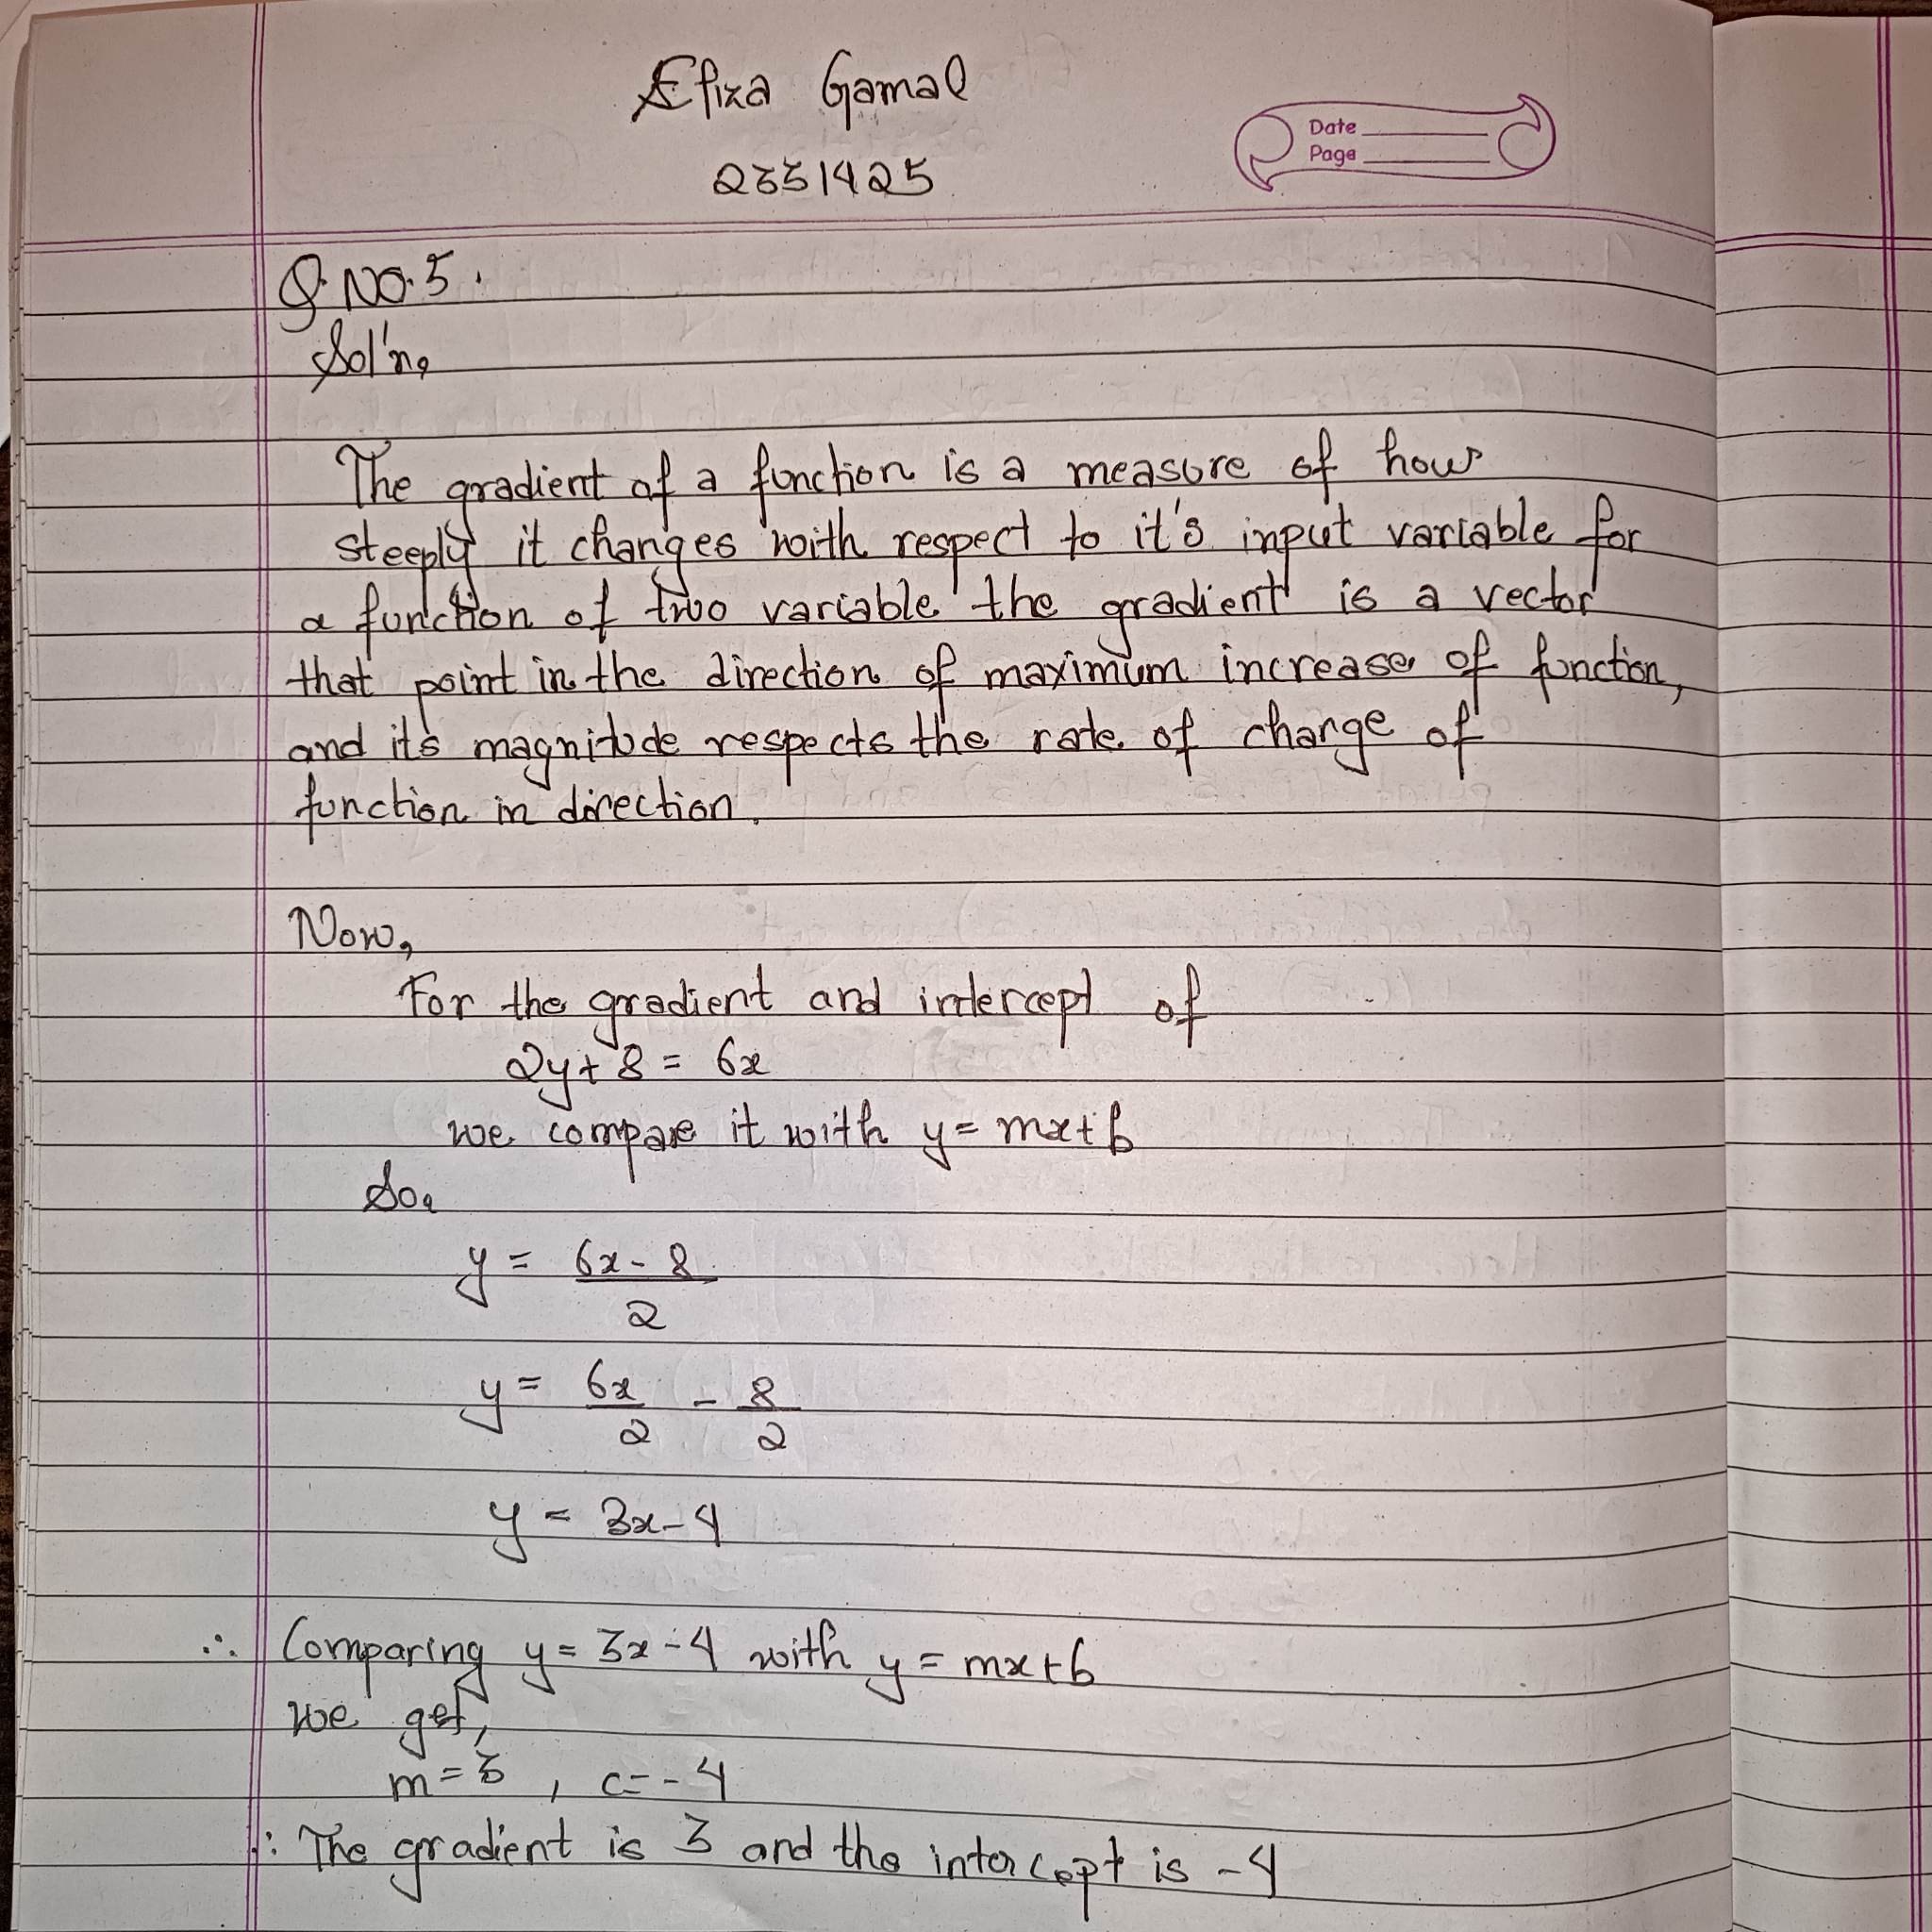 Efiza Gamal
Date
Page
2351425
Q.NO.5.
Sol'n,
The gradient of a function is a measure of how
steeply it changes with respect to it's input variable for
a function of two variable the gradient is a vector
that point in the direction of maximum increase of function,
and its magnitude respects the rate of change of
function in direction.
Now,
For the gradient and intercept of
2y+8 = 6x
we compare it with y = mx+b
So,
y = 6x - 8
2
y = 6x - 8
2 2
y = 3x-4
∴ Comparing y = 3x-4 with y = mx+b
we get,
m=3 , c=-4
∴ The gradient is 3 and the intercept is -4